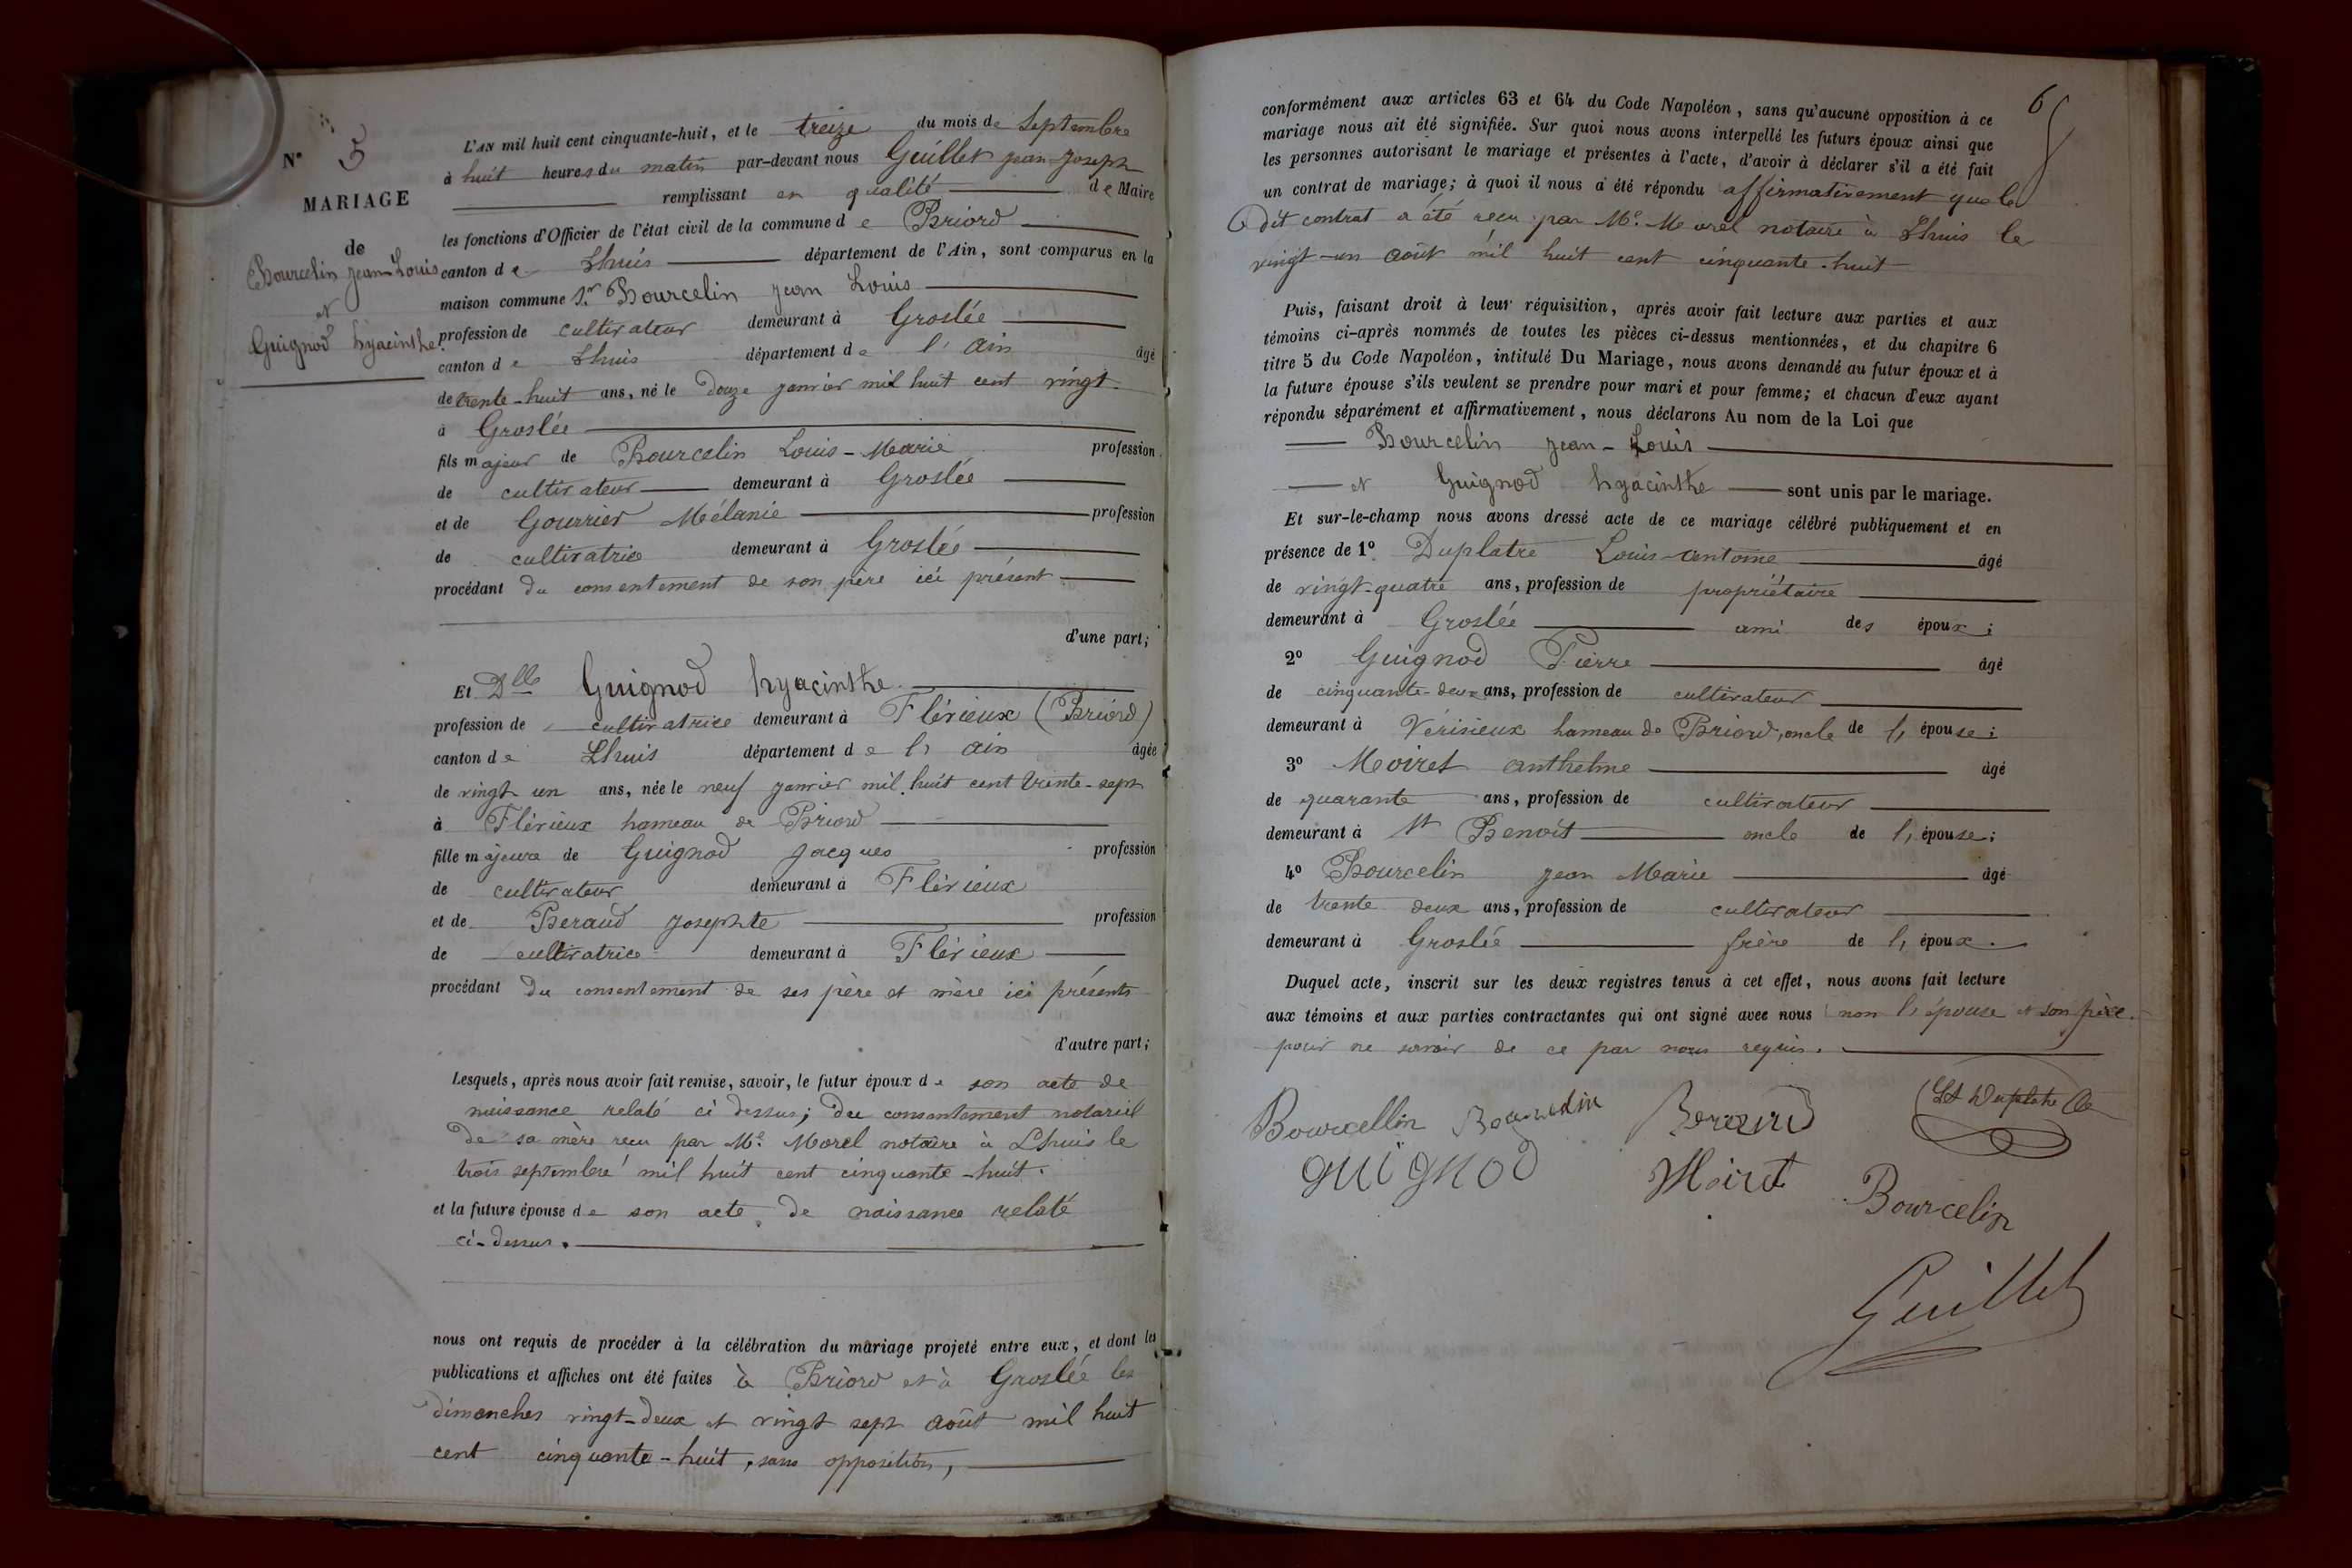 N° 5
MARIAGE
de
Bourcelin jean-Louis
et
Guignod hyacinthe.
L'AN mil huit cent cinquante-huit, et le treize du mois de Septembre
à huit heures du matin par-devant nous Guillet jean-joseph
remplissant en qualité de Maire
les fonctions d'Officier de l'état civil de la commune de Briord
canton de Lhuis département de l'Ain, sont comparus en la
maison commune Sr. Bourcelin jean Louis
profession de cultivateur demeurant à Groslée
canton de Lhuis département de l'ain âgé
de trente-huit ans, né le douze janvier mil huit cent vingt
à Groslée
fils majeur de Bourcelin Louis-Marie profession
de cultivateur demeurant à Groslée
et de Gourrier Mélanie profession
de cultivatrice demeurant à Groslée
procédant du consentement de son père ici présent
d'une part;
Et Dlle Guignod hyacinthe.
profession de cultivatrice demeurant à Flérieux (Briord)
canton de Lhuis département de l'ain âgée
de vingt un ans, née le neuf janvier mil huit cent trente-sept
à Flérieux hameau de Briord
fille majeure de Guignod jacques profession
de cultivateur demeurant à Flérieux
et de Beraud josephte profession
de cultivatrice demeurant à Flérieux
procédant du consentement de ses père et mère ici présents
d'autre part;
Lesquels, après nous avoir fait remise, savoir, le futur époux de son acte de
naissance relaté ci dessus; du consentement notariel
de sa mère recu par Me. Morel notaire à Lhuis le
trois septembre mil huit cent cinquante-huit.
et la future épouse de son acte de naissance relaté
ci-dessus.
nous ont requis de procéder à la célébration du mariage projeté entre eux, et dont les
publications et affiches ont été faites à Briord et à Groslée les
dimanches vingt-deux et vingt sept août mil huit
cent cinquante-huit, sans opposition,
6
conformément aux articles 63 et 64 du Code Napoléon, sans qu'aucune opposition à ce
mariage nous ait été signifiée. Sur quoi nous avons interpellé les futurs époux ainsi que
les personnes autorisant le mariage et présentes à l'acte, d'avoir à déclarer s'il a été fait
un contrat de mariage; à quoi il nous a été répondu affirmativement que le
dit contrat a été recu par Me. Morel notaire à Lhuis le
vingt-un août mil huit cent cinquante-huit
Puis, faisant droit à leur réquisition, après avoir fait lecture aux parties et aux
témoins ci-après nommés de toutes les pièces ci-dessus mentionnées, et du chapitre 6
titre 5 du Code Napoléon, intitulé Du Mariage, nous avons demandé au futur époux et à
la future épouse s'ils veulent se prendre pour mari et pour femme; et chacun d'eux ayant
répondu séparément et affirmativement, nous déclarons Au nom de la Loi que
Bourcelin jean-Louis
et Guignod hyacinthe sont unis par le mariage.
Et sur-le-champ nous avons dressé acte de ce mariage célébré publiquement et en
présence de 1° Duplatre Louis-antoine âgé
de vingt-quatre ans, profession de propriétaire
demeurant à Groslée ami des époux;
2° Guignod Pierre âgé
de cinquante-deux ans, profession de cultivateur
demeurant à Vérisieux hameau de Briord, oncle de l'épouse;
3° Moiret anthelme âgé
de quarante ans, profession de cultivateur
demeurant à St Benoît oncle de l'épouse;
4° Bourcelin jean Marie âgé
de trente deux ans, profession de cultivateur
demeurant à Groslée frère de l'époux.
Duquel acte, inscrit sur les deux registres tenus à cet effet, nous avons fait lecture
aux témoins et aux parties contractantes qui ont signé avec nous non l'épouse et son père.
pour ne savoir de ce par nous requis.
Bourcellin Beraud Ls Duplatre
guignod Moiret Bourcelin
Guillet